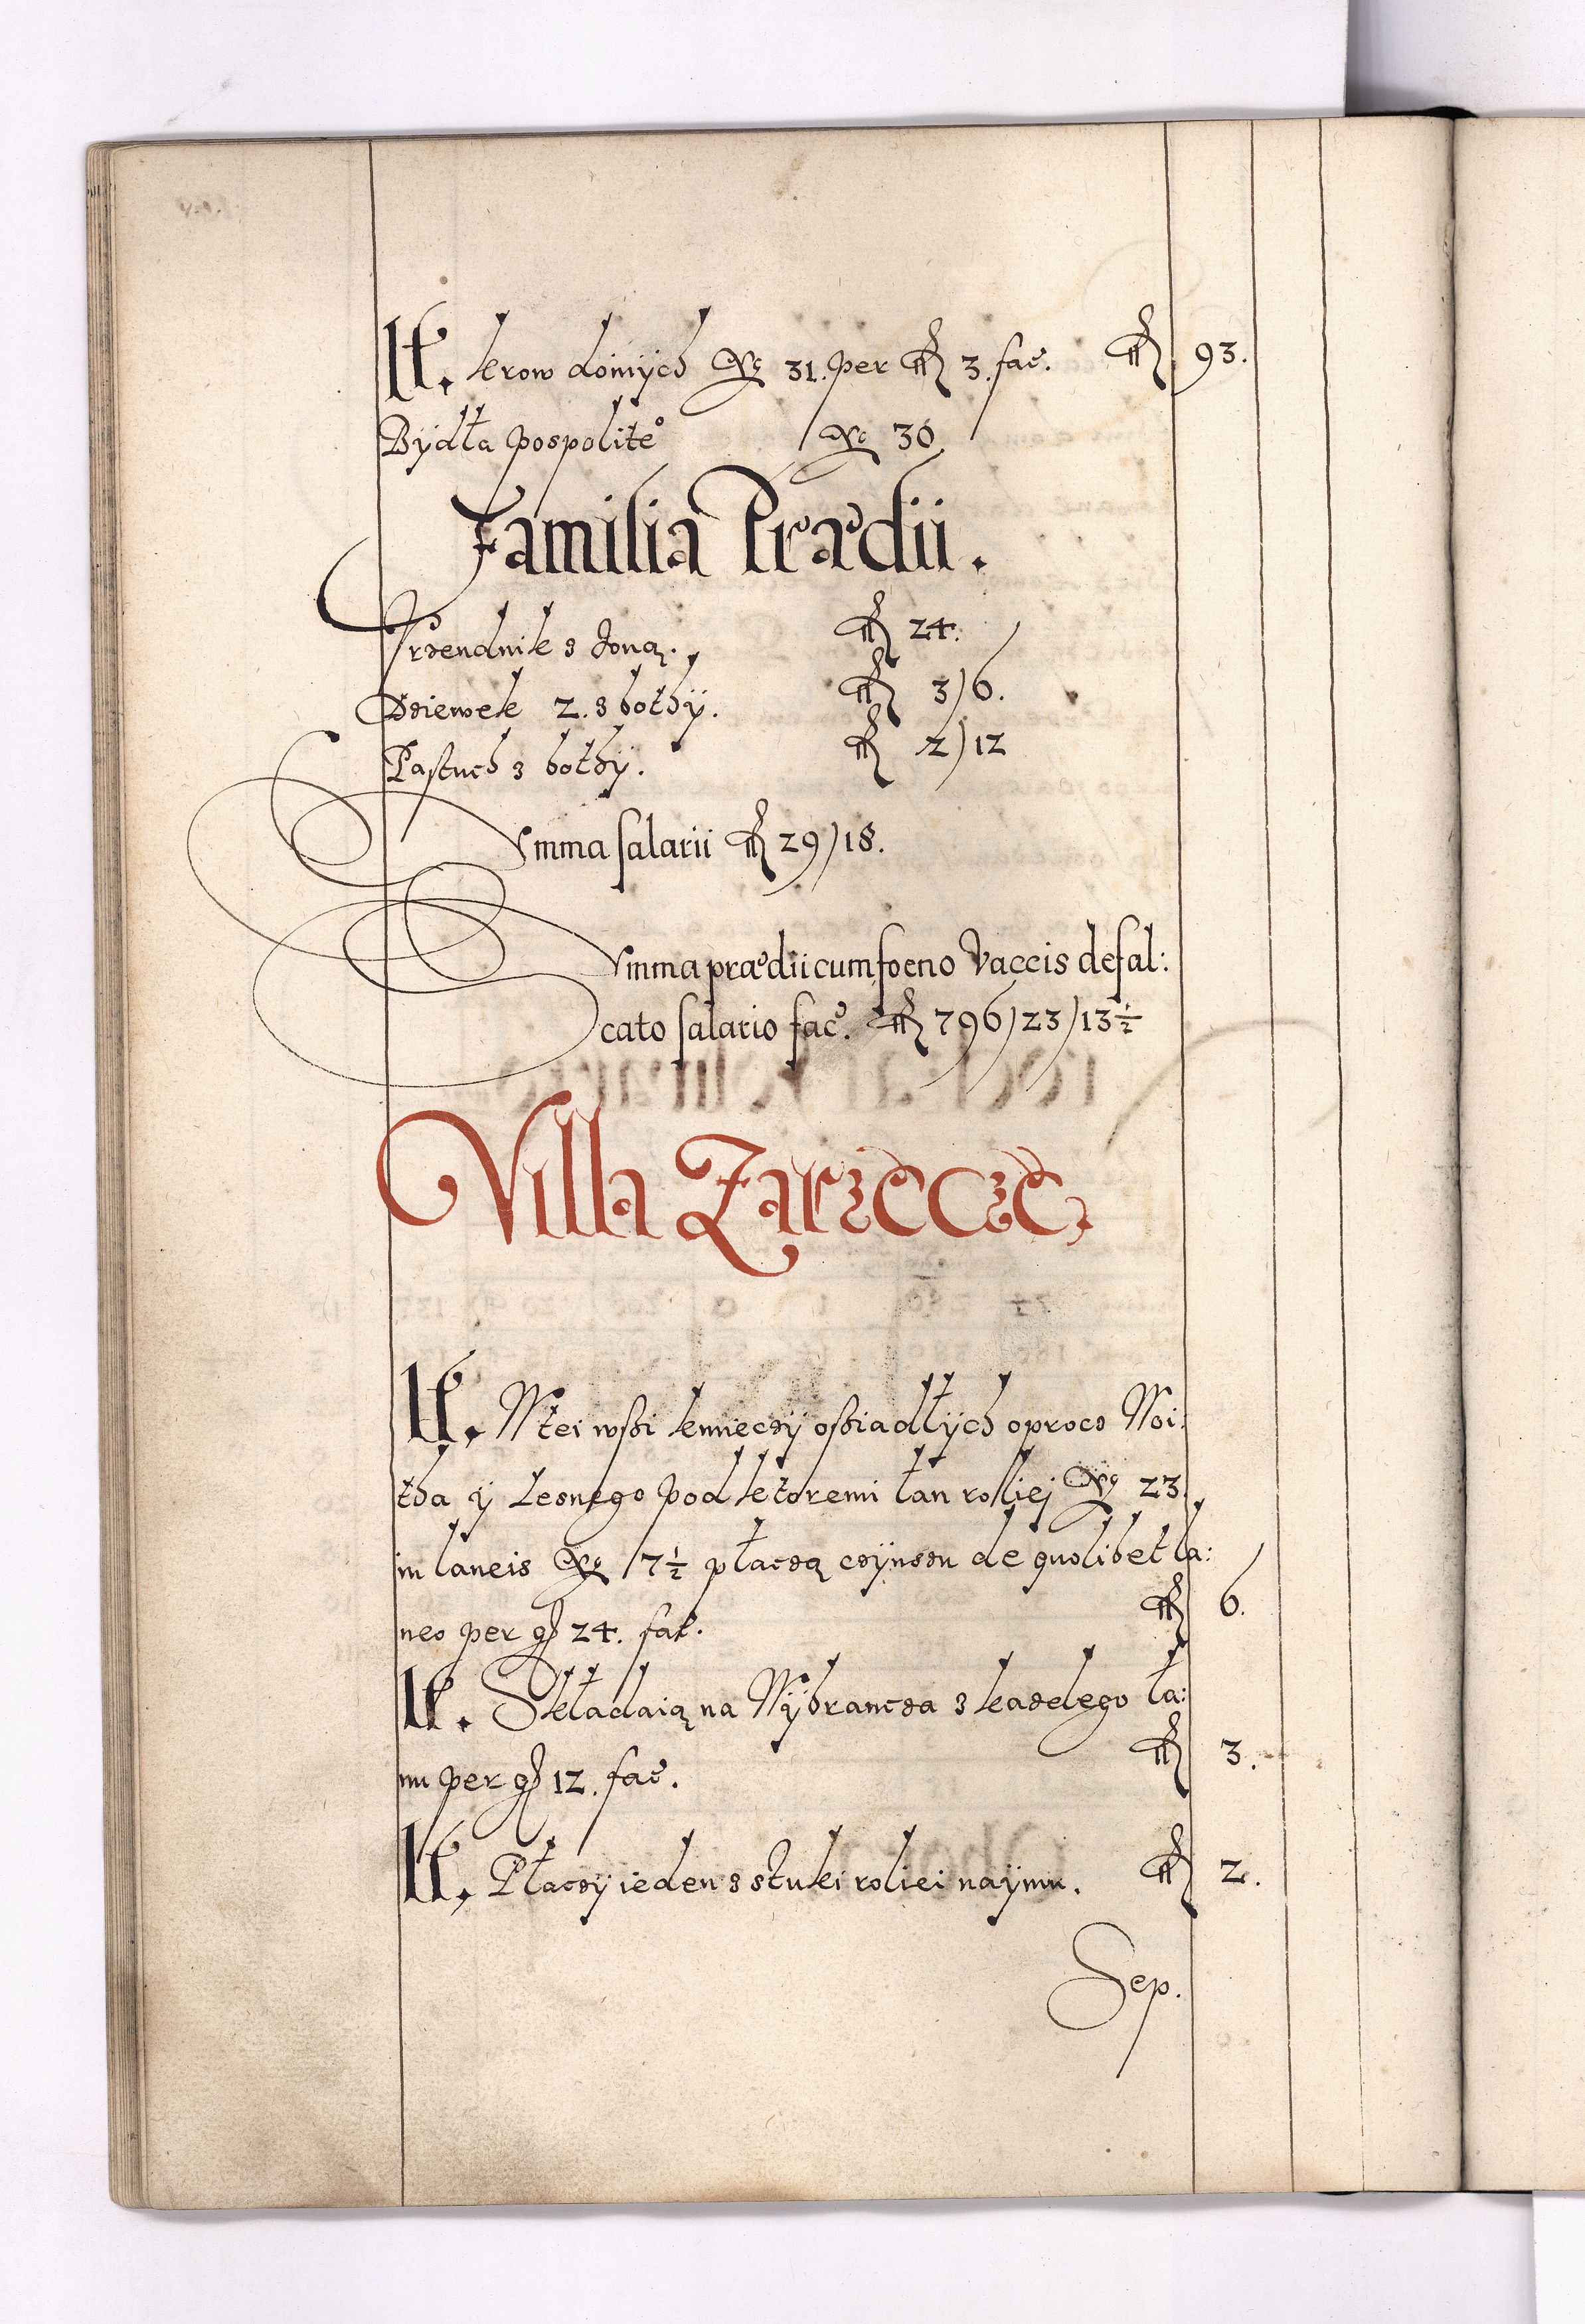 It. krow doinÿch Nº 31. per fl 3. fac. fl 93.
Bÿdła pospolite° Nº 30
Familia Prædii.
Vrzendnik z żoną. fl 24.
Dziewek 2. z bothÿ. fl 3)6.
Pastuch z bothÿ. fl 2)12
Summa salarii fl 29)18.
Summa prædii cum foeno Vaccis defal:
cato salario fac. fl 796)23)13½
Villa Zarzecze,
It. Wtei wßi kmieczÿ oßiadłÿch oprocz Woi:
tha ÿ Lesnego pod ktoremi łan roliej Nº 23.
in laneis Nº 7½ płaczą czÿnszu de quolibet la:
neo per gr 24. fac. fl 6.
It. Składaią na Wÿbrancza z kazdego ła:
nu per gr 12. fac. fl 3.
It. Płaczÿ ieden z stuki roliei naÿmu. fl 2.
Sep.